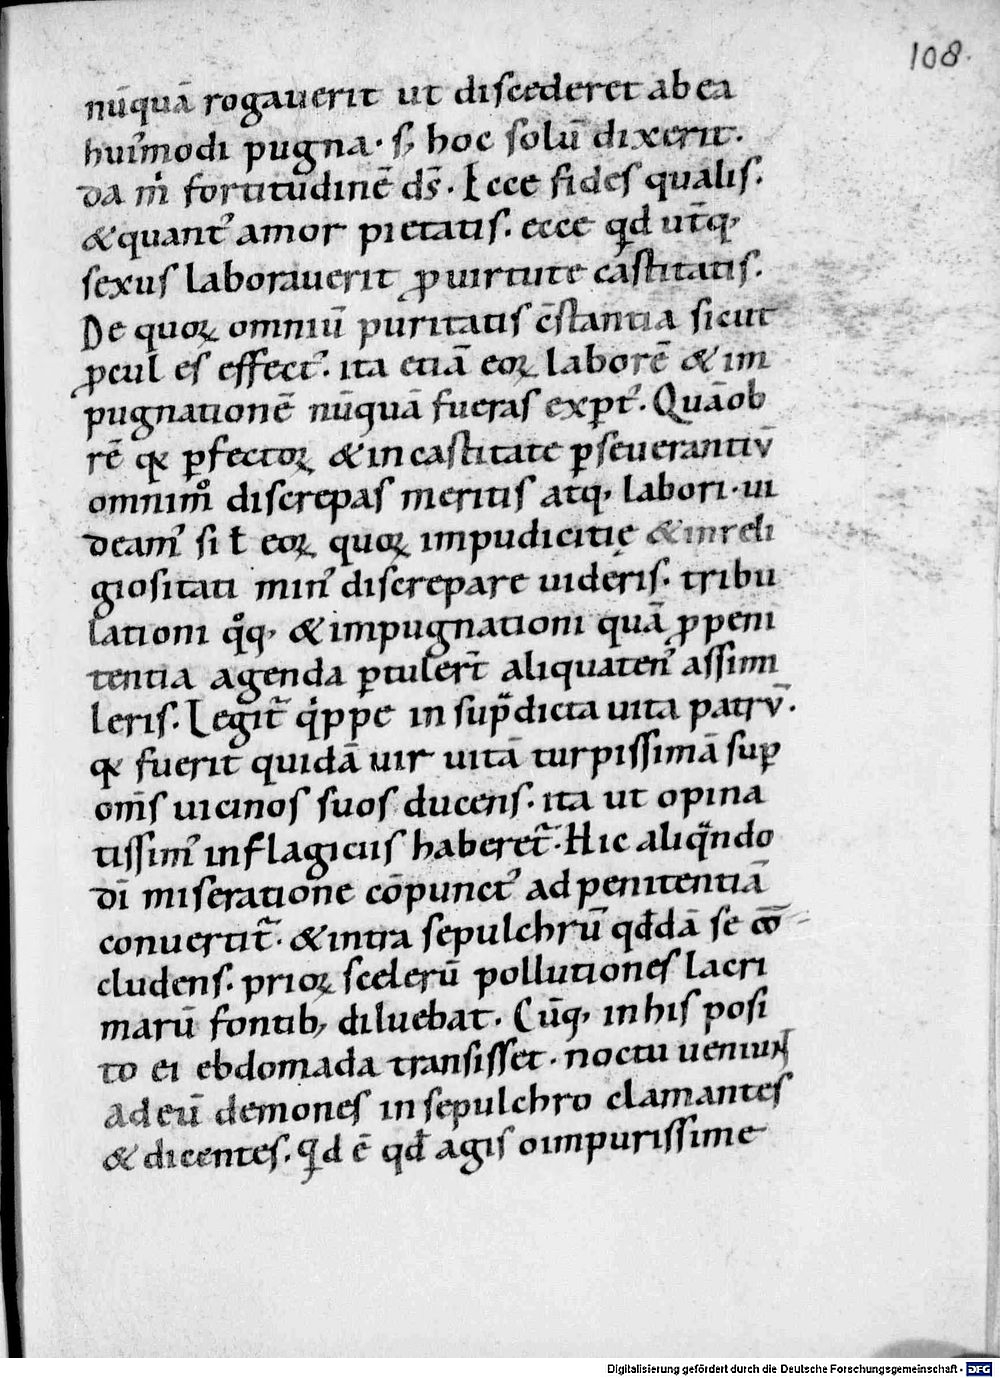 108.
nūquā rogauerit ut discederet ab ea
hui᾽modi pugna · s; hoc solū dixerit.
Da m̓ fortitudinē ds̄. Ecce fides qualis.
& quant᾽ amor pietatis. ecce qͥd utq̄;
sexus laborauerit ꝓ uirtute castitatis.
De quoꝝ omniū puritatis c̄stantia sicut
ꝓcul es effect᾽. ita etiā eoꝝ laborē & im
pugnationē nūquā fueras expt᾽. Quāob
rē qꝛ ꝑfectoꝝ & in castitate ꝑseuerantiū
omnimͦ discrepas meritis atq; labori · ui
deam᾽ si ł eoꝝ quoꝝ impudicitię & inreli
giositati min᾽ discrepare uideris. tribu
lationi qͦq; & impugnationi quā ꝓ peni
tentia agenda ꝑtulert̄ aliquaten᾽ assimi
leris. Legit̃ qͥppe in sup̃dicta uita patrū.
qꝛ fuerit quidā uir uitā turpissimā suꝑ
om̄s uicinos suos ducens. ita ut opina
tissim᾽ in flagiciis haberet̃. Hic aliqͣndo
dī miseratione cōpunct᾽ ad penitentiā
conuertit̃. & intra sepulchrū qd̄dā se cō
cludens. prioꝝ scelerū pollutiones lacri
marū fontib; diluebat. Cūq; in his posi
to ei ebdomada transisset. noctu ueniunt
ad eū demones in sepulchro clamantes
& dicentes. Qͥd ē qd̄ agis o impurissime
Digitalisierung gefördert durch die Deutsche Forschungsgemeinschaft - DFG